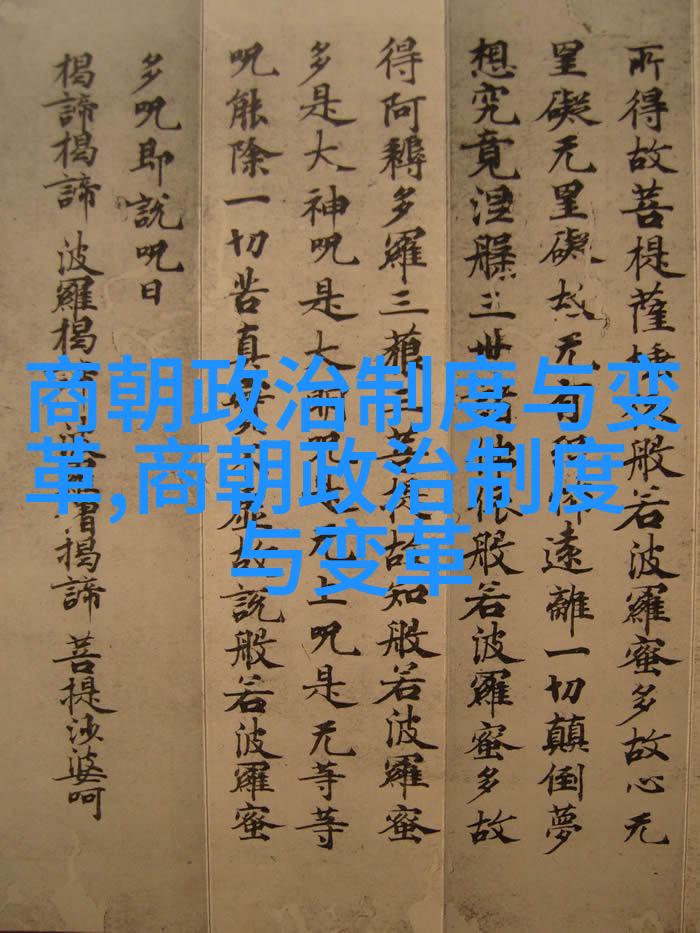 所得故菩提薩般若波羅蜜多故心无
罣礙无罣礙故无有遠離一切顛倒夢
想究竟涅槃三世般若波羅蜜多故
得阿耨多羅三藐三菩提故知般若波羅蜜
多是大神呪是大明呪是无上呪是无等等
呪能除一切苦真虛故說般若波羅蜜
多呪即說呪曰
揭諦揭諦 波羅揭 揭諦 菩提沙婆呵
商朝政治制度与变
革,商朝政治制度
与变革